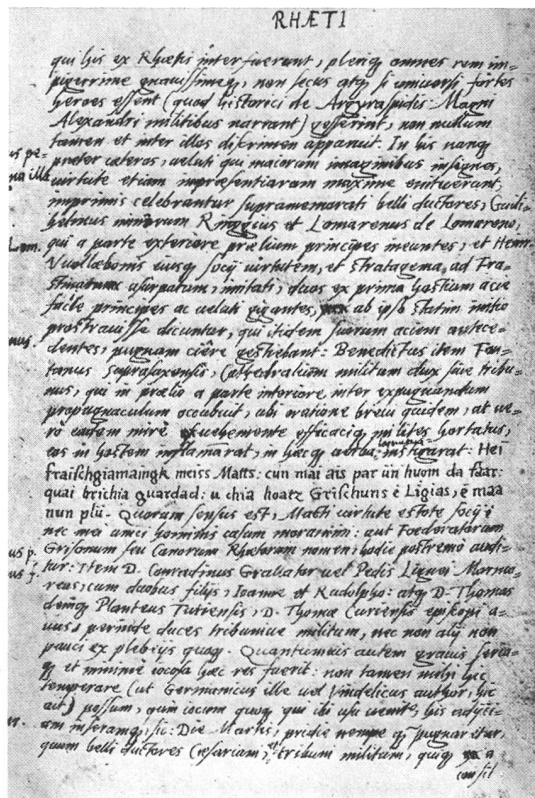 RHÆTI
qui his ex Rhætis interfuerunt, pleriq omnes rem im-
pigerrime gnavissimeq, non secus atq si universi fortes
heroes essent (quod historici de Argyraspidis Magni
Alexandri militibus narrant) gesserint, non nullum
tamen et inter illos discrimen apparuit. In his nanq
præter cæteros, veluti qui maiorum imaginibus insignes,
virtute etiam impræsentiarum maxime enituerunt,
imprimis celebrantur supramemorati belli ductores, Guili-
helmus Ringgius et Lomarenus de Lomareno,
qui a parte exteriore prælium principes ineuntes, et Henr.
Vuollæbonis eiusq socij virtutem, et stratagema, ad Fra-
usurpatum, imitati, duos ex prima hostium acie
facile principes ac veluti gigantes, ab ipso statim initio
prostravisse dicuntur, qui itidem suorum aciem antece-
dentes, pugnam ciêre gestiebant: Benedictus item Fon-
tanus Suprasaxensis, Cathedralium militum dux sive tribu-
nus, qui in prælio a parte interiore, inter expugnandum
propugnaculum occubuit, ubi oratione brevi quidem, at ve-
rò eadem mirè vehemente efficaciq milites hortatus,
eos in hostem inflamarat, in hæcq verba instigarat: Hei
fraischgiamaingk meiss Matts: cun mai ais par ün huom da faar:
quai brichia guardad: u chia hoatz Grischuns è Ligias, è maa
nun plü. Quorum sensus est, Macti virtute estote socij
nec mei unici hominis casum moramini: aut Foederatorum
Grisonum seu Canorum Rhætorum nomen, hodie postremò audi-
tur: Item D. Conradinus vel Pedis Lignei Marmo-
reus, cum duobus filijs, Ioanne et Rudolpho: atq D. Thomas
deniq Planteus D. Thomæ Curiensis episkopi a-
vus: perinde duces tribunive militum, nec non alij non
pauci ex plebeijs quoq. Quantumvis autem gravis seria-
q et minimè iocosa hæc res fuerit: non tamen mihi hic
temperare (ut Germanicus ille vel Vindelicus author, hic
ait) possum, quin iocum quoq qui ibi usu venit, his adijci-
am inseramq, sic: Die Martis, pridie nempe q pugnaretur,
quum belli ductores Cæsariani, tribuni militum, quiq a
consil